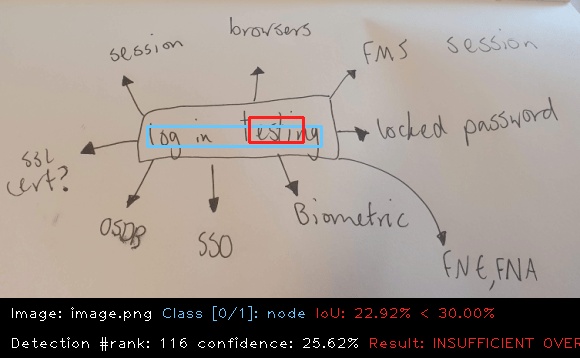 session
browsers
FMS session
log in testing
locked password
SSL
cert?
OSDB
SSO
Biometric
FNE, FNA
Image: image.png Class [0/1]: node IoU: 22.92% < 30.00%
Detection #rank: 116 confidence: 25.62% Result: INSUFFICIENT OVER